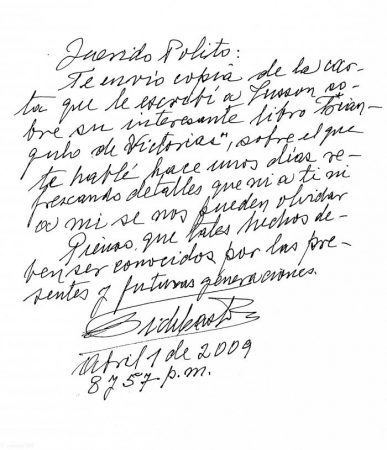 Querido Polito:
Te envío copia de la car-
ta que le escribí a Susson so-
bre su interesante libro "Trián-
gulo de Victorias", sobre el que
te hablé hace unos días re-
frescando detalles que ni a ti ni
a mi se nos pueden olvidar
Pienso que tales hechos de-
ben ser conocidos por las pre-
sentes y futuras generaciones.
Abril 1 de 2009
8 y 57 p.m.